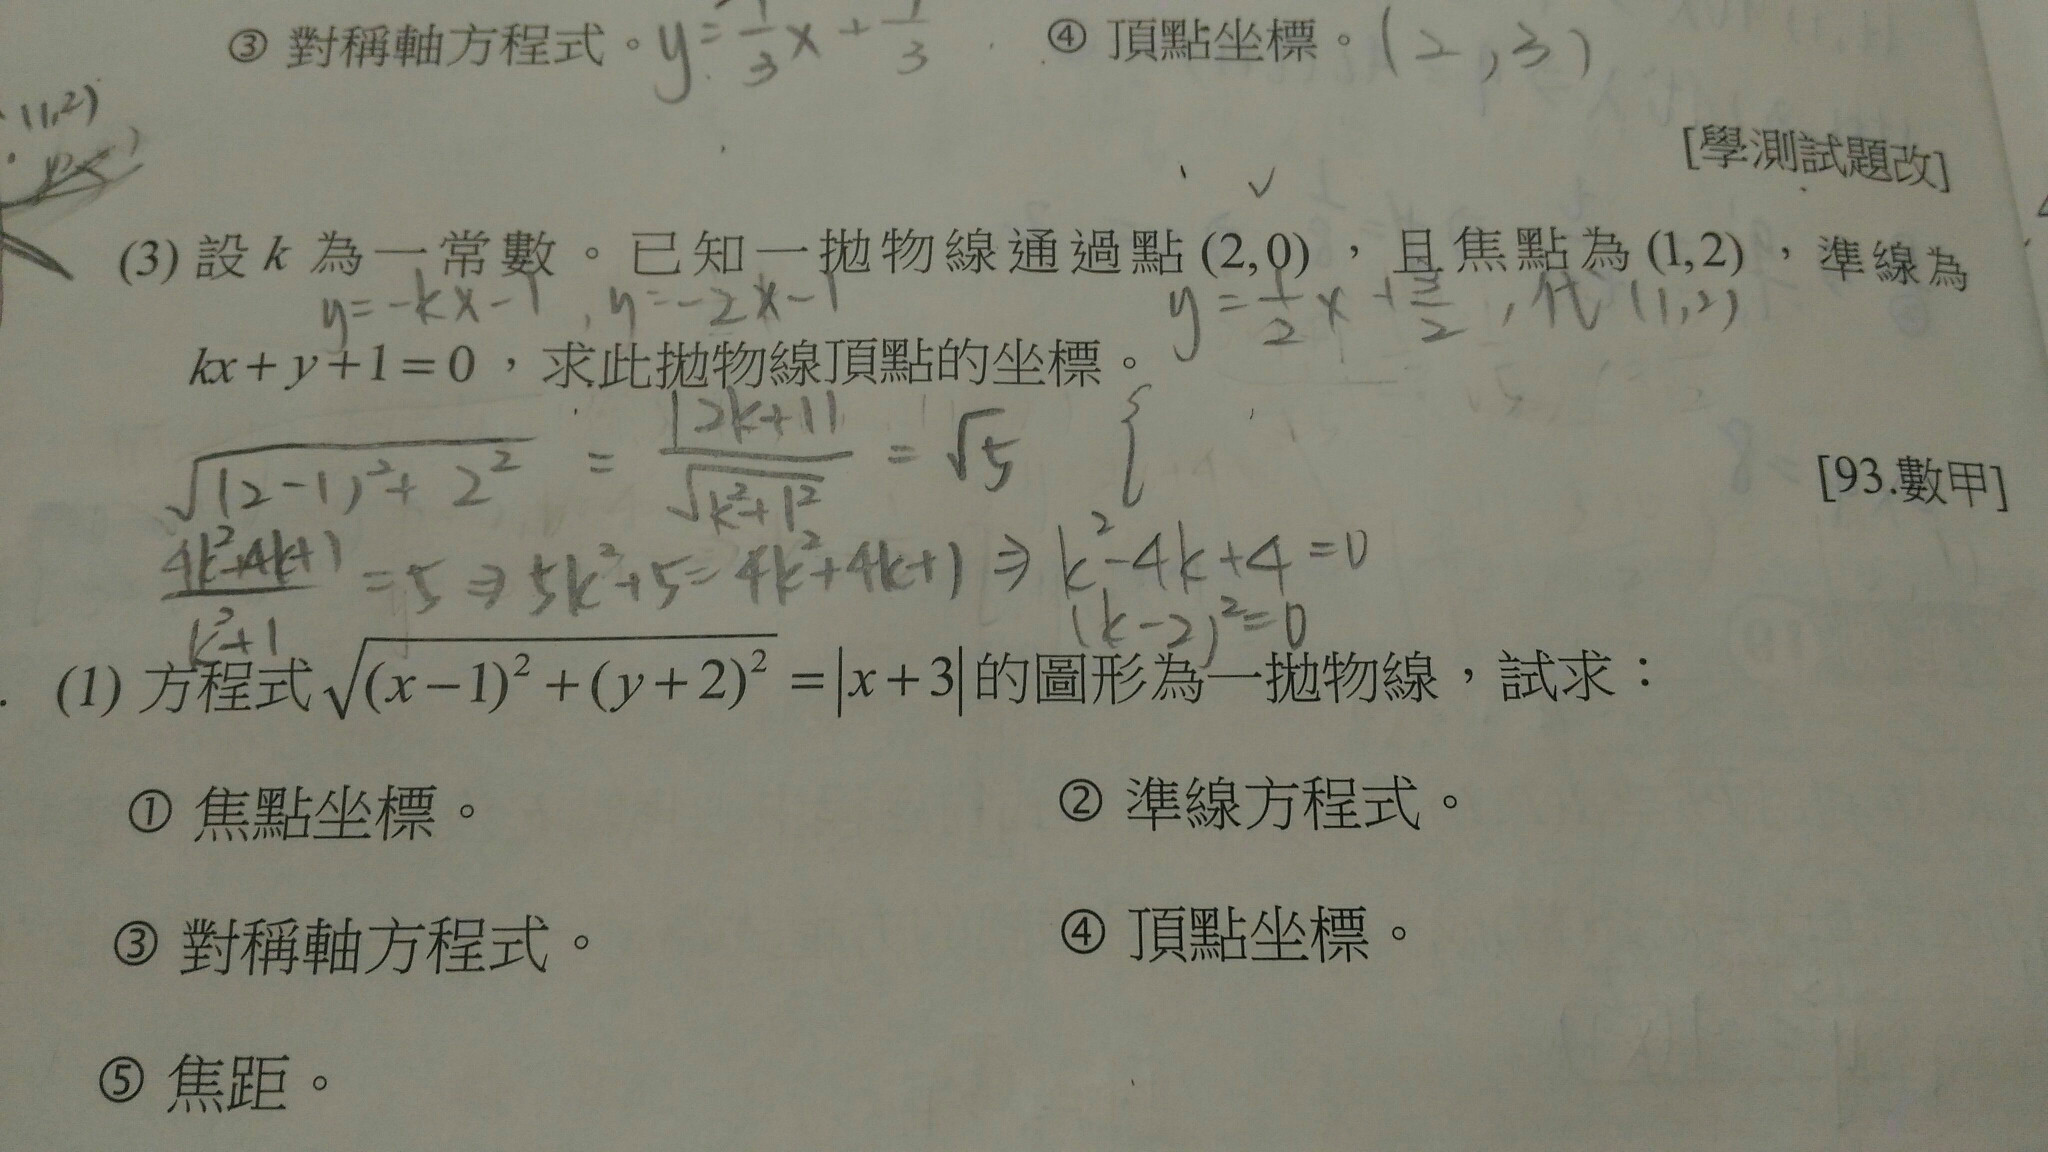 ③ 對稱軸方程式。y=1/3x+7/3 ④ 頂點坐標。(2,3)
(1,2)
[學測試題改]
(3) 設 k 為一常數。已知一拋物線通過點(2,0),且焦點為(1,2),準線為
y=-kx-1, y=-2x-1 y=1/2x+3/2,代(1,2)
kx+y+1=0,求此拋物線頂點的坐標。
√((2-1)²+2²) = |2k+1|/√(k²+1²) = √5 {
[93.數甲]
(4k²+4k+1)/(k²+1) =5⇒5k²+5=4k²+4k+1⇒k²-4k+4=0
(k-2)²=0
. (1) 方程式√((x-1)²+(y+2)²)=|x+3|的圖形為一拋物線,試求:
① 焦點坐標。 ② 準線方程式。
③ 對稱軸方程式。 ④ 頂點坐標。
⑤ 焦距。